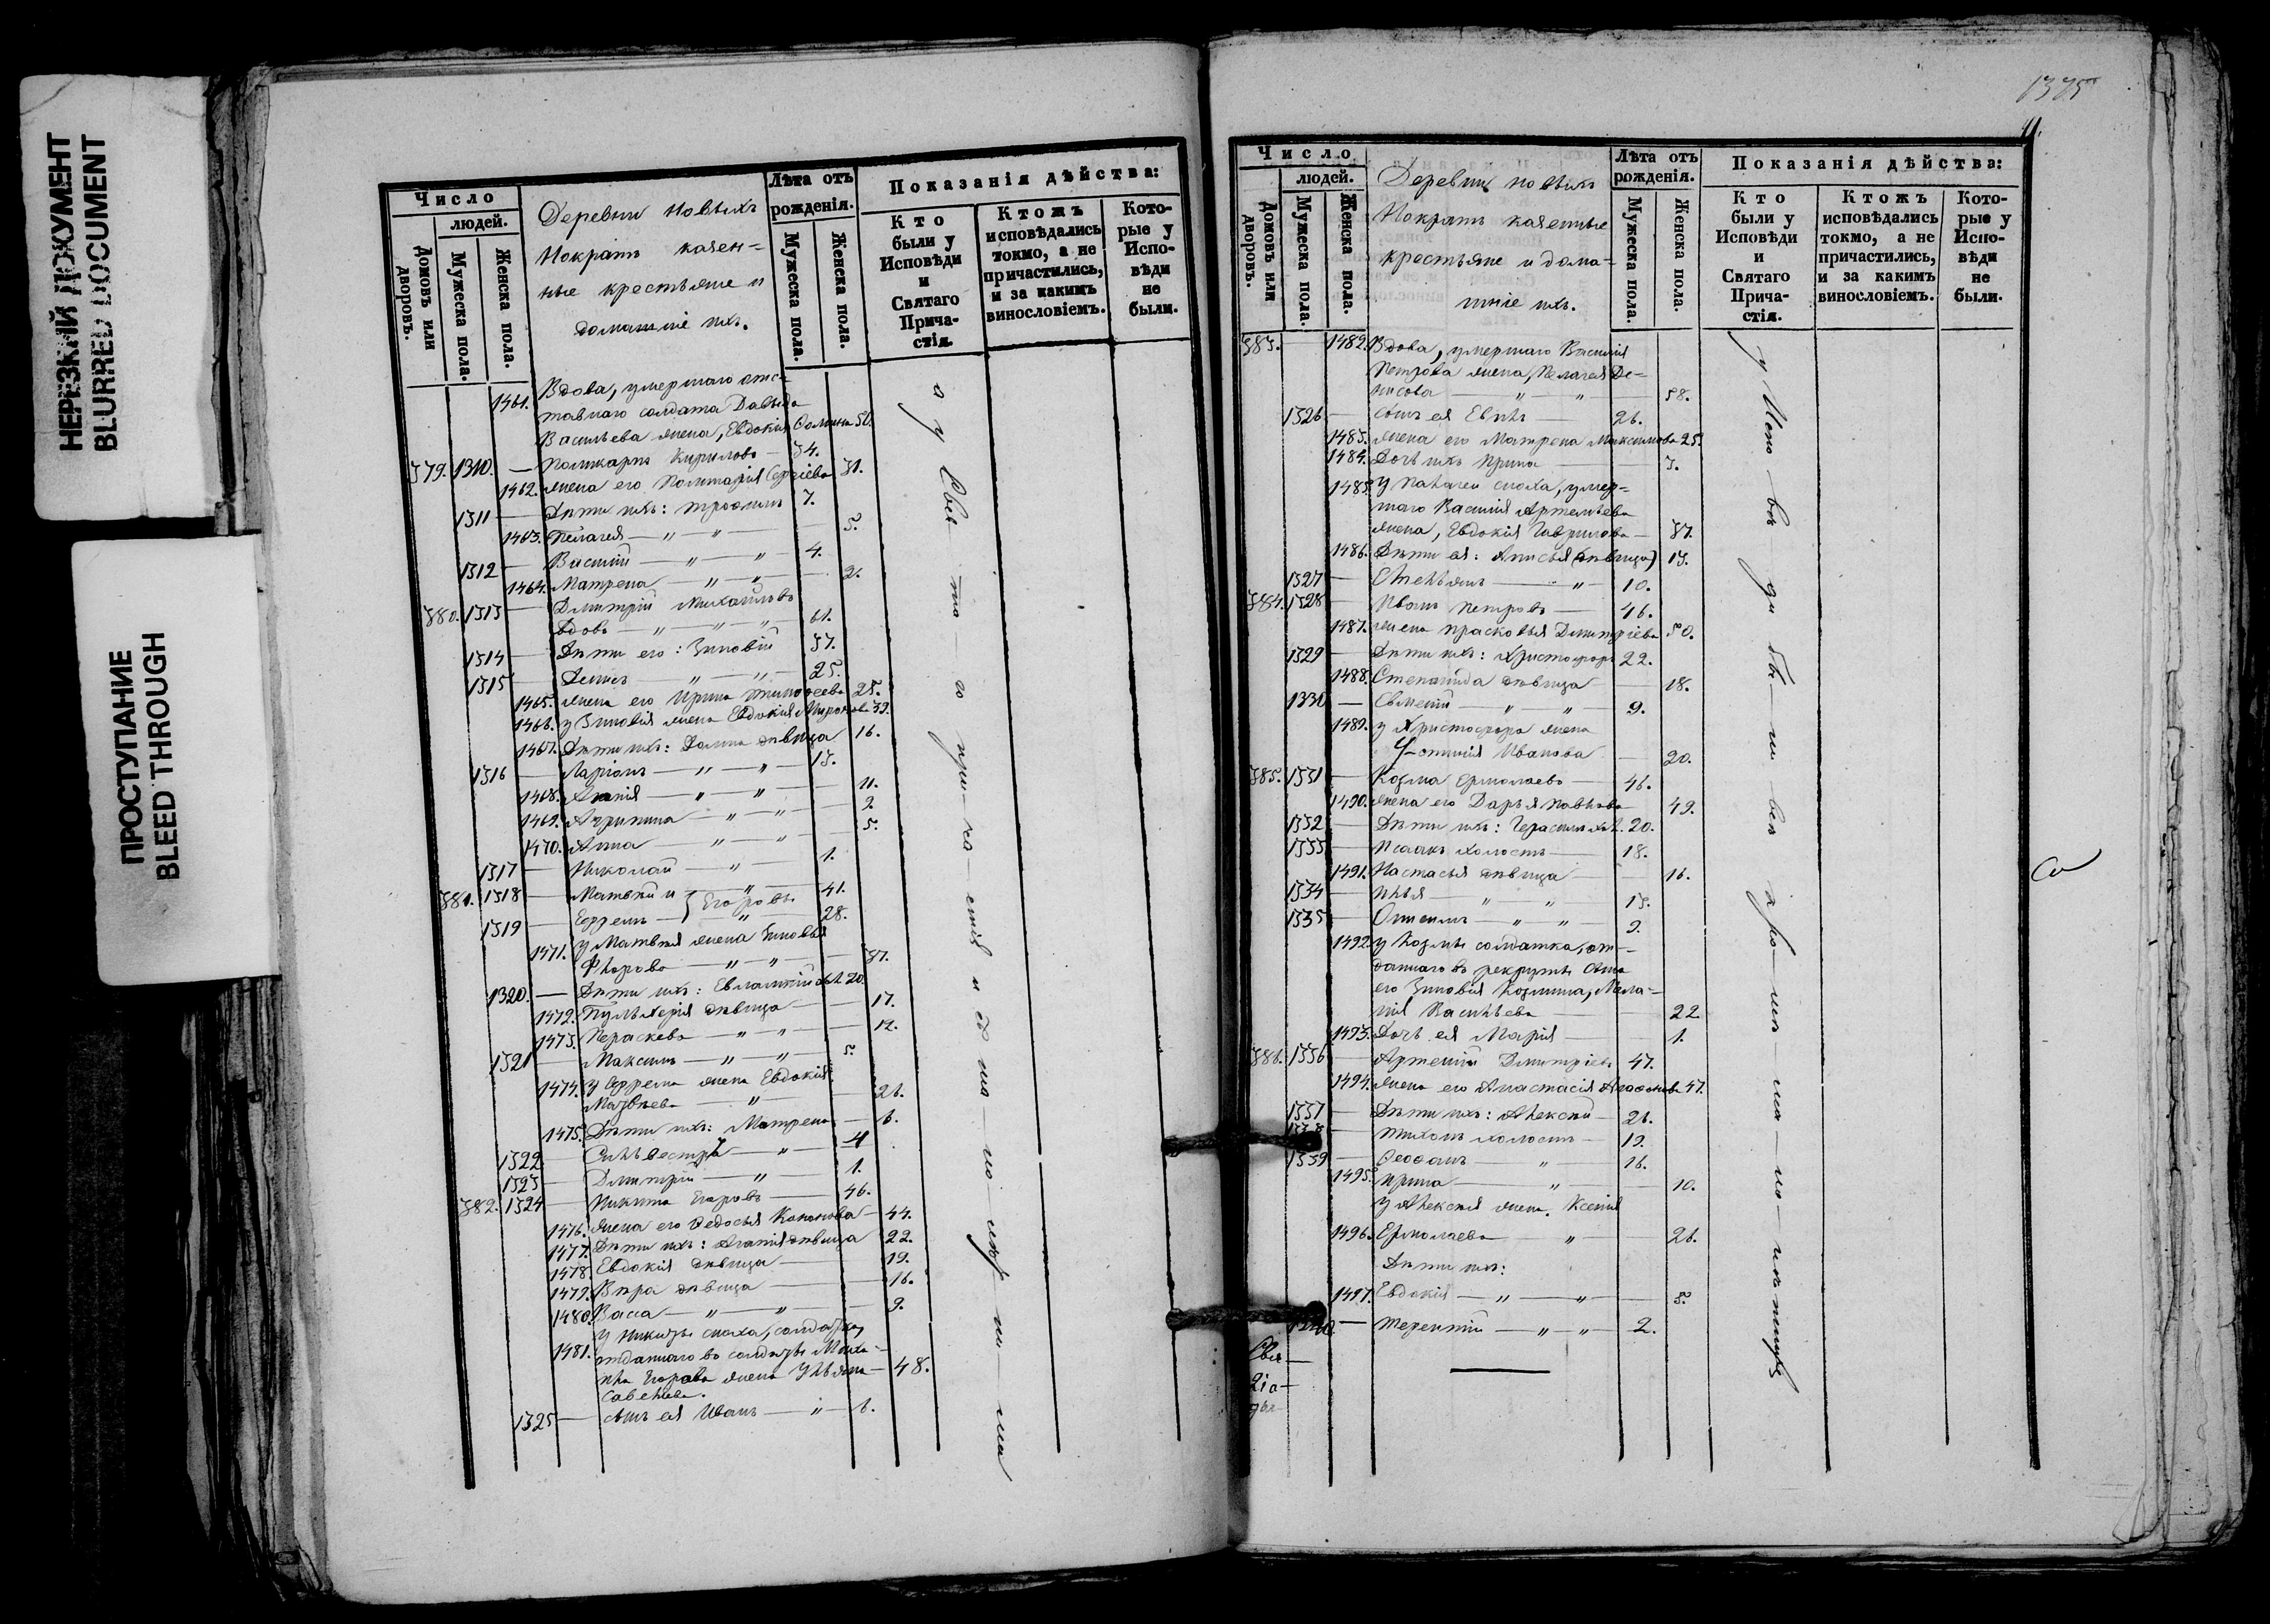 НЕРЕЗКИЙ ДОКУМЕНТ
BLURRED DOCUMENT
ПРОСТУПАНИЕ
BLEED THROUGH
Число
людей.
Домовъ или дворовъ.
Мужеска пола.
Женска пола.
Деревни Новыхъ
Мокрятъ казен=
ные крестьяне и
домашніе ихъ.
Лѣта отъ рожденія.
Мужеска пола.
Женска пола.
Показанія дѣйства:
Кто были у Исповѣди и Святаго Прича-стія.
Ктожъ исповѣдались токмо, а не причастились, и за какимъ винословіемъ.
Кото-рые у Испо-вѣди не были.
1461. Вдова, умершаго отс-
тавнаго солдата Давыда
Васильева жена, Евдокія Ѳомина 50.
379. 1310. — Поликарпъ Кириловъ — 34.
1462. жена его Сергіева 31.
1311 — Дѣти ихъ: Трофимъ 7.
1463. Пелагея — „ — „ — 5.
1312 — Василій — „ — „ — 4.
1464. Матрена — „ — „ — 2.
380. 1313 — Дмитрій Михайловъ
вдовъ — „ — „ — „ — 61.
1314 — Дѣти его: Зиновій 37.
1315 — Денисъ — „ — „ 25.
1465. жена его Ирина Тимоѳеева 25.
1466. у Зиновія жена Евдокія Миронова 39.
1467. Дѣти ихъ: дѣвица 16.
1316 — Ларіонъ — „ — „ — 13.
1468. — „ — „ — 11.
1469. Агрипина — „ — „ — 9.
1470. Анна — „ — „ — 5.
1317 — Николай — „ — 1.
381. 1318 — Матвѣй и } „ — 41.
Егоровы
1319 — Ефремъ — } „ — 28.
1471. у Матвѣя жена Зиновья
— „ — „ — 37.
1320. — Дѣти ихъ: Евлампій хол. 20.
1472. Пульхерія дѣвица — 17.
1473. Параскева — „ — „ — 12.
1321 — Максимъ — „ — „ — 5.
1474. у Ефрема жена Евдокія
Матвѣева — „ — 26.
1475. Дѣти ихъ: Матрена — 6.
1322 — Сильвестръ — „ — 4
1323 — Дмитрій — „ — 1.
382. 1324 — Никита Егоровъ — 46.
1476. жена его Ѳедосья Кононова — 44.
1477. Дѣти ихъ: Агапія дѣвица 22.
1478 Евдокія дѣвица — 19.
1479. Вѣра дѣвица — 16.
1480. Васса — „ — „ — 9.
у Никиты сноха, солдатка,
1481. отданнаго въ солдаты Миха-
ила Егорова жена Ульяна — 48.
Савельева.
1325 — сынъ ея Иванъ — „ — 6.
1375
41.
Число
людей.
Домовъ или дворовъ.
Мужеска пола.
Женска пола.
Деревни Новыхъ
Мокрятъ казенные
крестьяне и дома=
шніе ихъ.
Лѣта отъ рожденія.
Мужеска пола.
Женска пола.
Показанія дѣйства:
Кто были у Исповѣди и Святаго Прича-стія.
Ктожъ исповѣдались токмо, а не причастились, и за какимъ винословіемъ.
Кото-рые у Испо-вѣди не были.
383. 1482. Вдова, умершаго Василія
Петрова жена, Пелагея Де=
нисова — „ — „ — 58.
1326 — сынъ ея — 26.
1483. жена его Матрена Максимова 25.
1484. Дочь ихъ Ирина — 3.
1485. У Палагеи сноха, умер=
шаго Василія Артемьева
жена, Евдокія Гаврилова — 37.
1486. Дѣти ея: Анисья (дѣвица) 13.
1327 — Стефанъ — „ — 10.
384. 1328 — Иванъ Петровъ — 46.
1487. жена Прасковья Дмитріева 50.
1329 — Дѣти ихъ: Христофоръ 22.
1488. Степанида дѣвица — 18.
1330 — Евменій — „ — „ — 9.
1489. у Христофора жена
Устинія Иванова — 20.
385. 1331 — Козма Ермолаевъ — 46.
1490. жена его Дарья Павлова — 49.
1332 — Дѣти ихъ: Герасимъ хол. 20.
1333 — Исаакъ холостъ — 18.
1491. Настасья дѣвица — 16.
1334 — Илья — „ — „ — 13.
1335 — — „ — „ — 9.
1492. у Козмы солдатка, от—
даннаго въ рекруты сына
его Зиновія Козмина, Мала=
нія Васильева — 22
1493. Дочь ея Марія — 1.
386. 1336 — Артемій Дмитріевъ 47.
1494. Жена его Анастасія Агафонова 47.
1337 — Дѣти ихъ: Алексѣй — 26.
1338 — Тихонъ холостъ — 19.
1339 — Ѳеофанъ — „ — 16.
1495. Ирина — „ — 10.
у Алексѣя жена. Ксенія
1496. Ермолаева — „ — 26.
Дѣти ихъ:
1497. Евдокія — „ — „ — 5.
1340. — Терентій — „ — „ — 2.